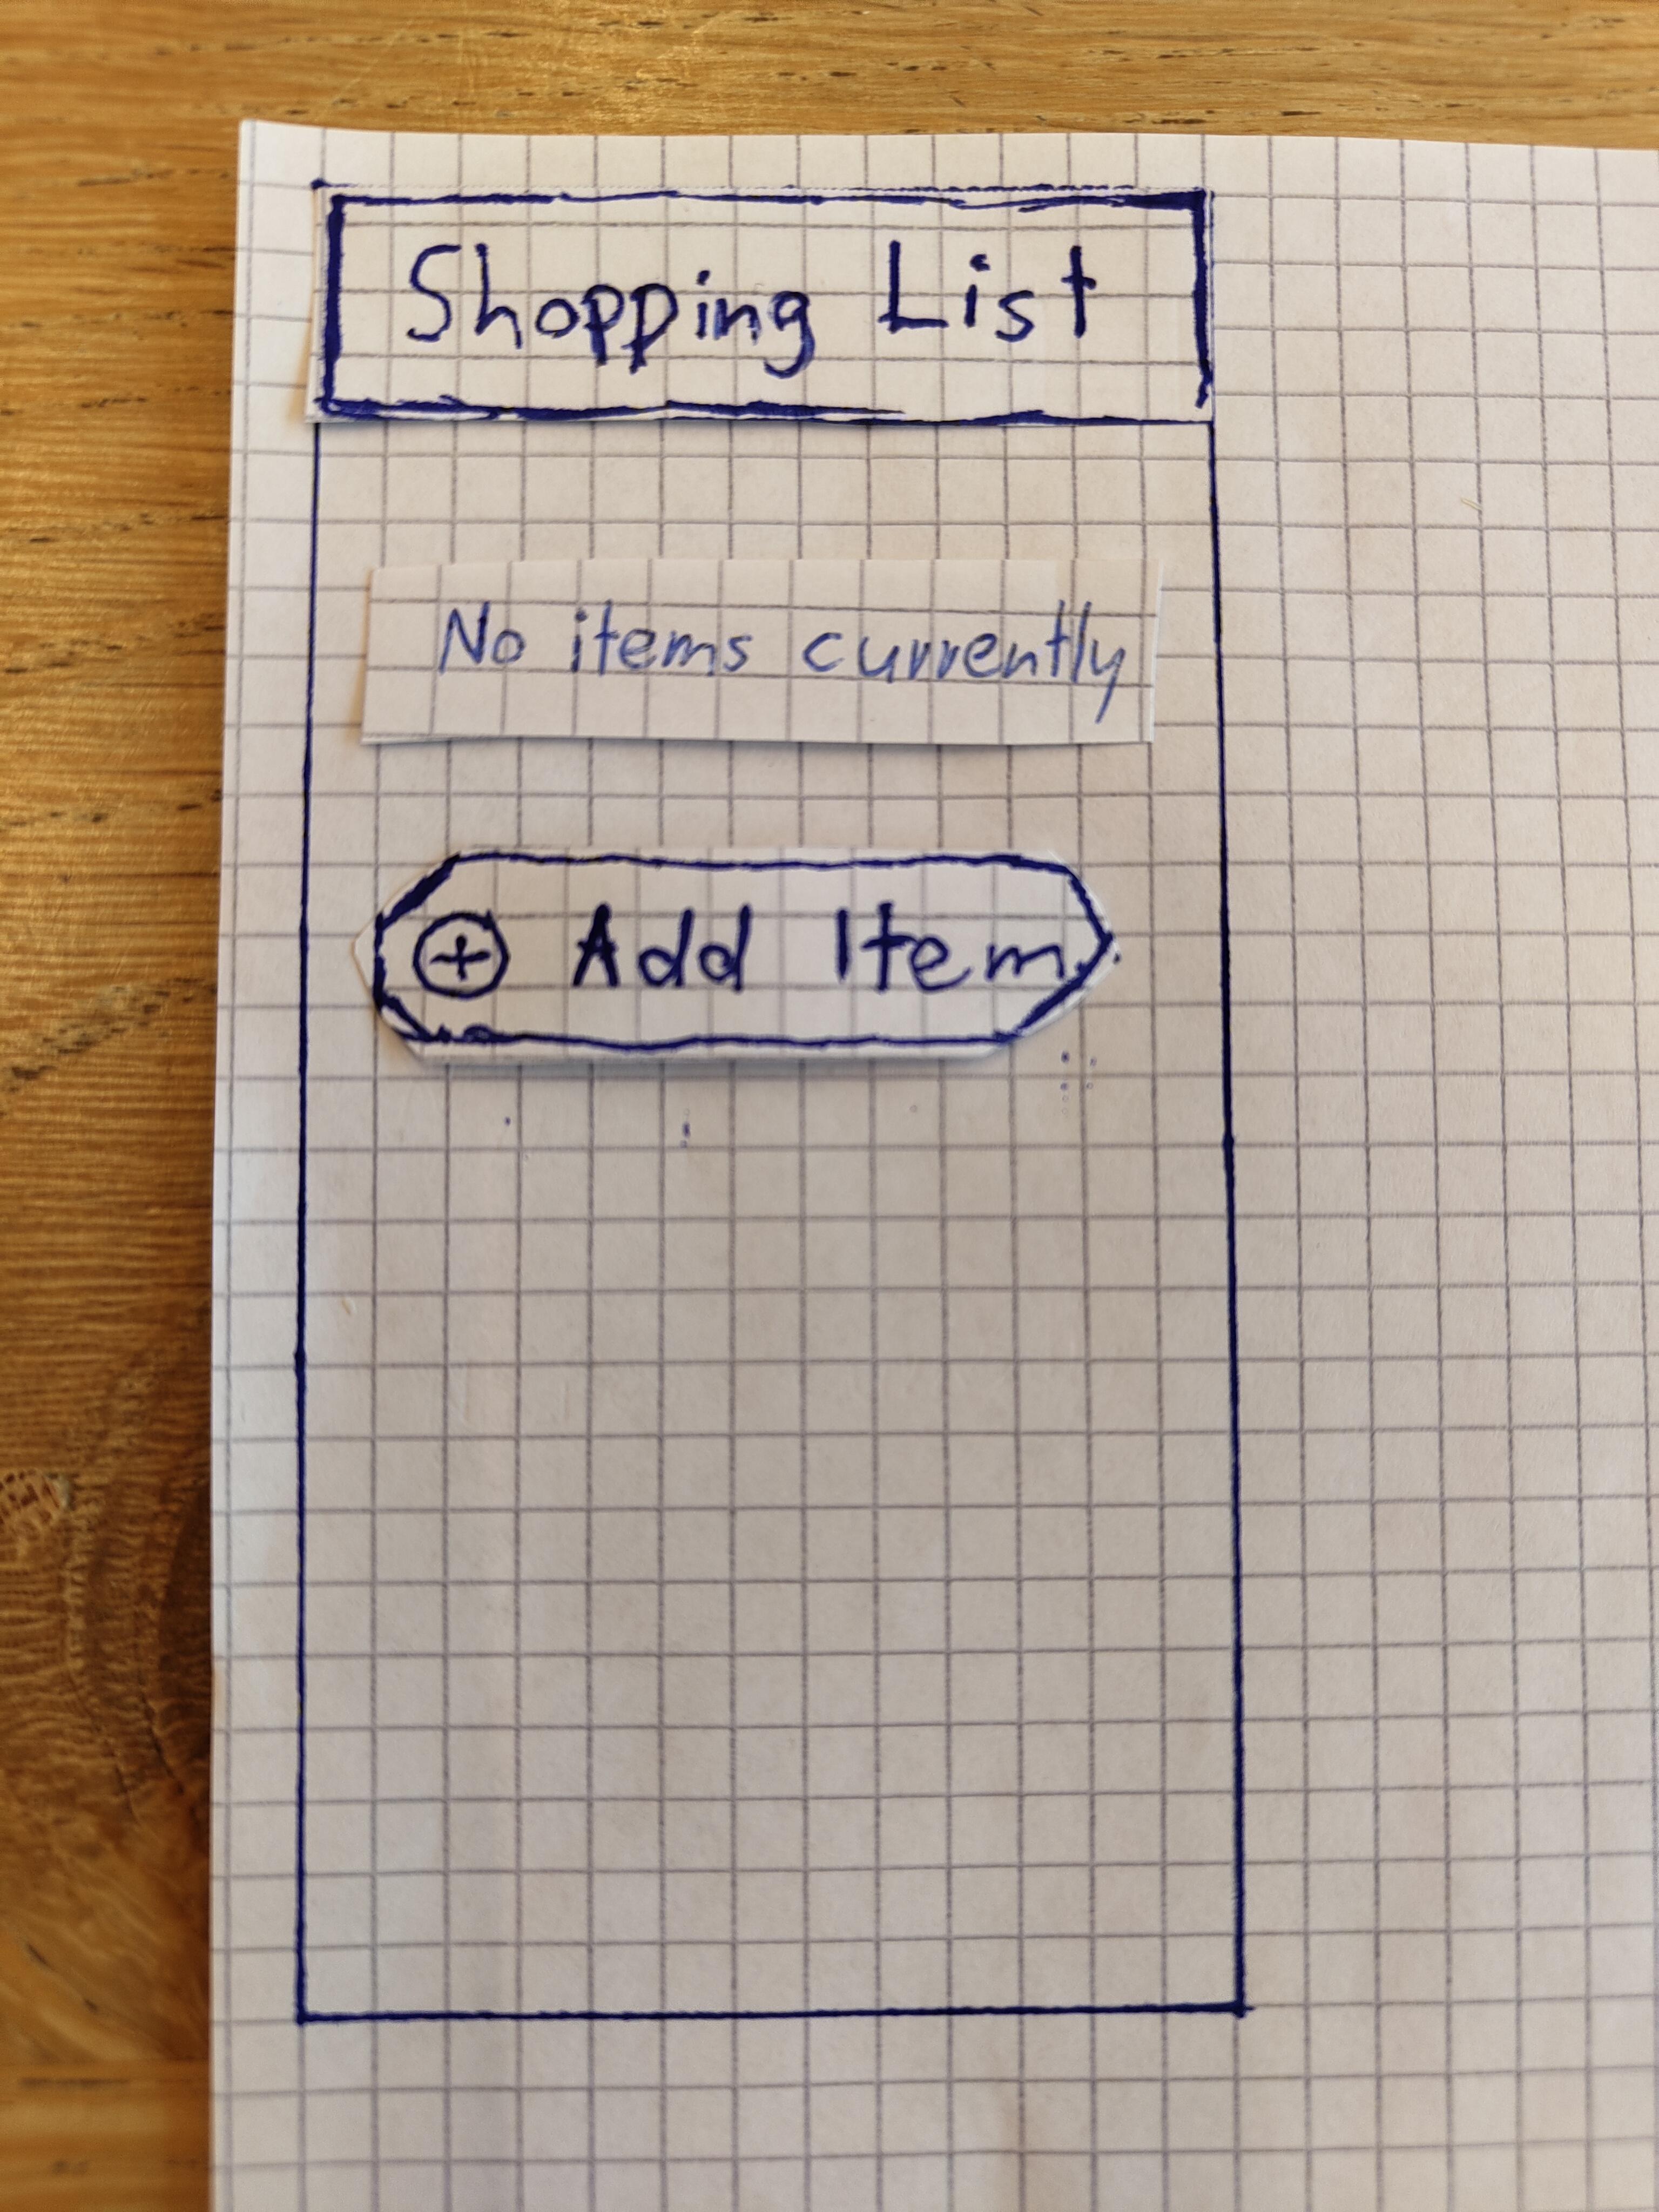 Shopping List
No items currently
+ Add Item